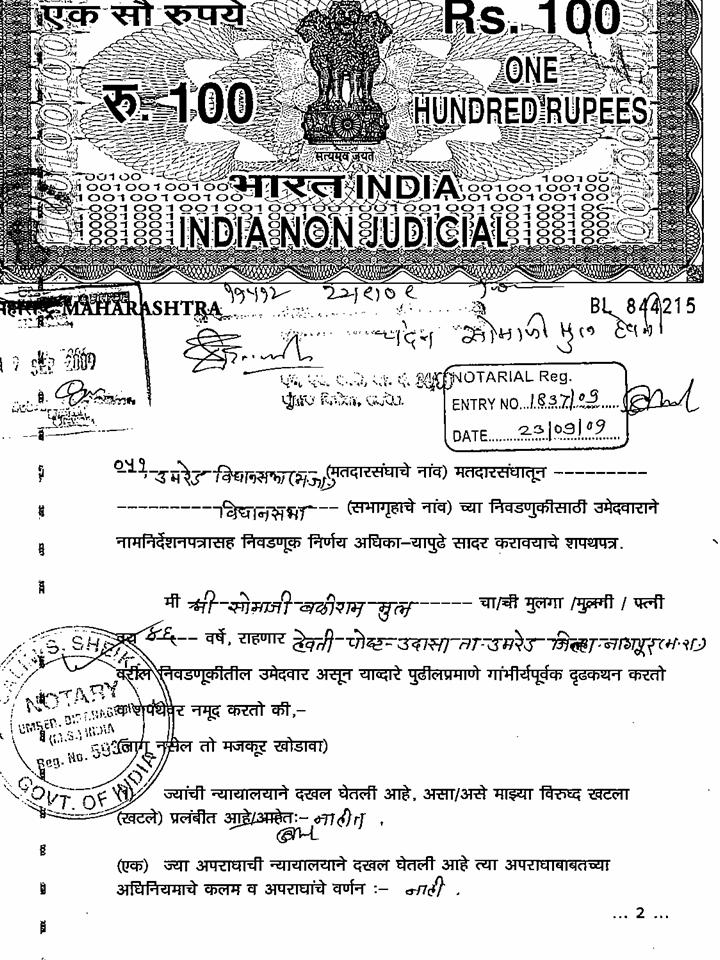 एक सौ रुपये
Rs. 100
रु. 100
ONE
HUNDRED RUPEES
सत्यमेव जयते
भारत INDIA
INDIA NON JUDICIAL
MAHARASHTRA
BL 844215
सोमाजी मुल
NOTARIAL Reg.
ENTRY NO. 1837/09
DATE 23/09/09
०५१, उमरेड विधानसभा (मतदारसंघाचे नांव) मतदारसंघातून ---------
----------------विधानसभा---- (सभागृहाचे नांव) च्या निवडणुकीसाठी उमेदवाराने
नामनिर्देशनपत्रासह निवडणूक निर्णय अधिका-यापुढे सादर करावयाचे शपथपत्र.
मी श्री सोमाजी बळीराम मुल ------- चा/ची मुलगा /मुलगी / पत्नी
वय ४६ -- वर्षे, राहणार हेवती पोस्ट-उदासा ता-उमरेड जिल्हा-नागपूर
वरील निवडणूकीतील उमेदवार असून याव्दारे पुढीलप्रमाणे गांभीर्यपूर्वक दृढकथन करतो
व शपथेवर नमूद करतो की,-
(लागू नसेल तो मजकूर खोडावा)
NOTARY
Reg. No.
GOVT. OF INDIA
ज्यांची न्यायालयाने दखल घेतली आहे, असा/असे माझ्या विरुध्द खटला
(खटले) प्रलंबीत आहे/आहेत:- नाहीत.
(एक) ज्या अपराधाची न्यायालयाने दखल घेतली आहे त्या अपराधाबाबतच्या
अधिनियमाचे कलम व अपराधांचे वर्णन :- नाही.
... 2 ...